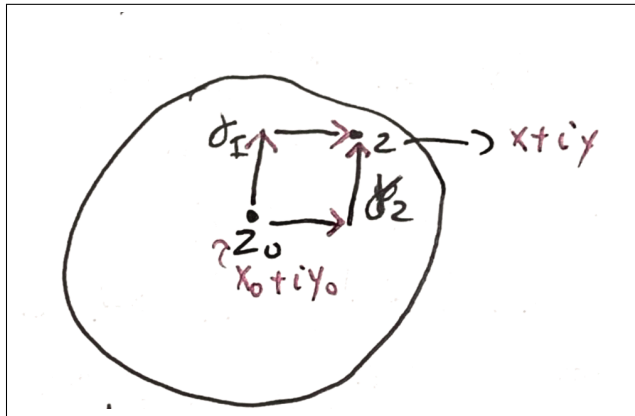 γ₁
z → x+iy
γ₂
z₀
x₀+iy₀